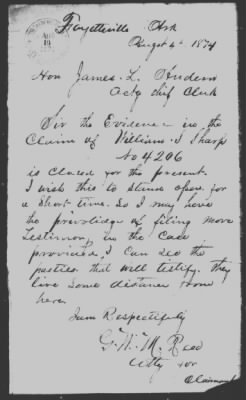 Fayetteville Ark
August 4th 1874
Hon James. L. Andem
Actg chief Clerk
Sir the Evidence in the
Claim of William. J Sharp
No 4206
is Closed for the present.
I wish this to stand open for
a Short time. So I may have
the priviledge of filing more
Testimony, in the Case
provided I Can See the
parties that will testify. they
live Some distance from
here.
I am Respectfully
G. W. M. Reed
Atty for
Claimant